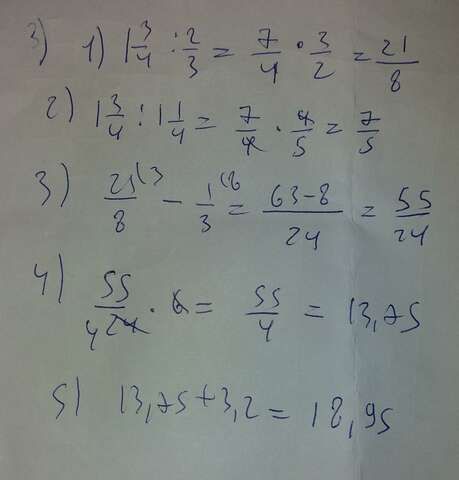 3) 1) 1 3/4 : 2/3 = 7/4 · 3/2 = 21/8
2) 1 3/4 : 1 1/4 = 7/4 · 4/5 = 7/5
3) 21/8 (3 - 1/3 (8 = 63-8/24 = 55/24
4) 55/4 24 · 6 = 55/4 = 13,75
5) 13,75+3,2 = 18,95